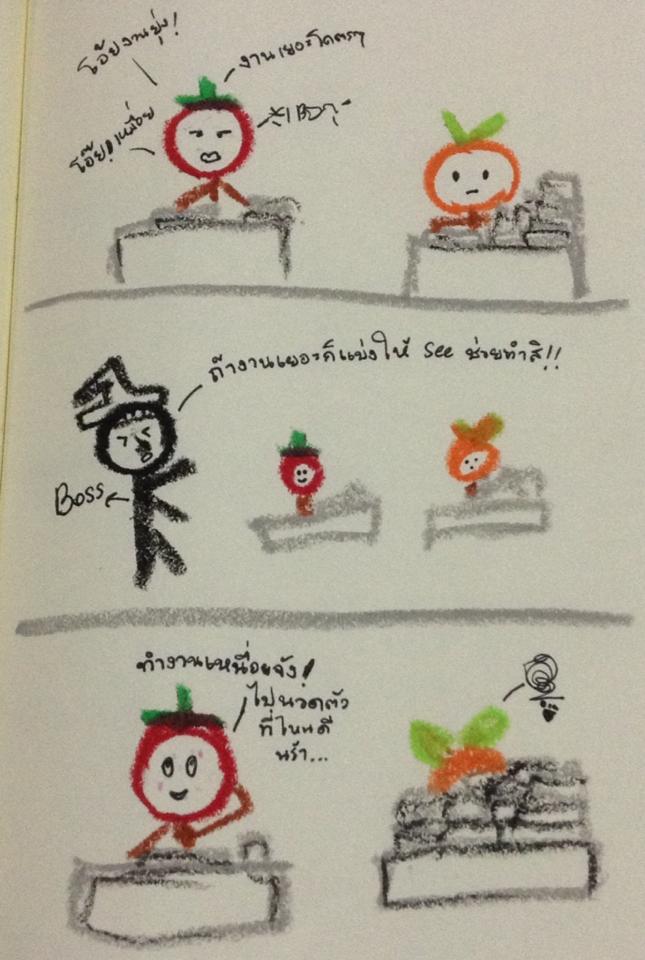 โอ้ยงานยุ่ง!
งานเยอะโคตรๆ
โอ๊ย! เหนื่อย
ถ้างานเยอะก็แบ่งให้ See ช่วยทำสิ!!
Boss
ทำงานเหนื่อยจัง!
ไปนวดตัว
ที่ไหนดี
นร้า...